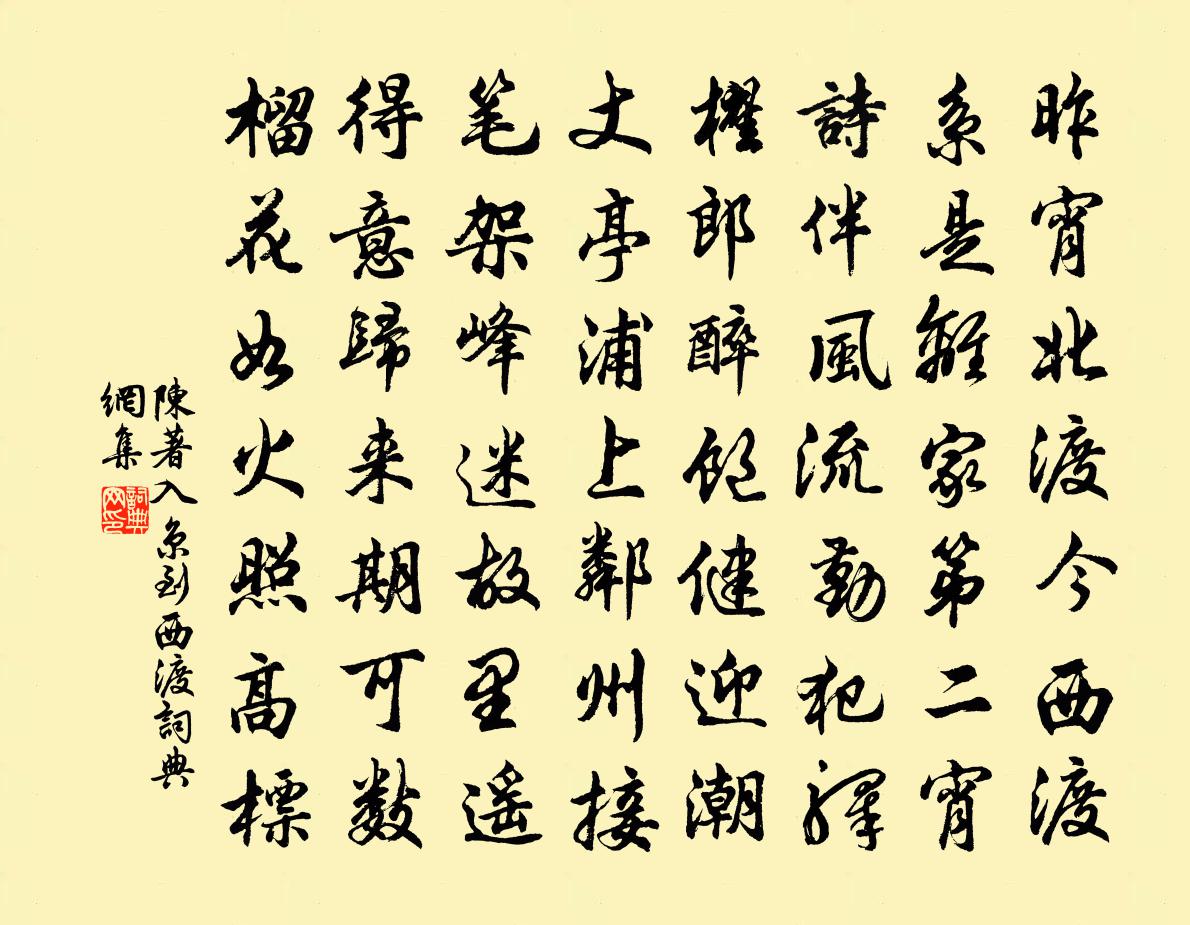 昨宵北渡今西渡
系是離家第二宵
詩伴風流勤犯驛
櫂郎醉飽健迎潮
丈亭浦上鄰州接
笔架峰迷故里遥
得意歸来期可数
榴花如火照高標
陳著入京到西渡詞典
網集
詞典
网印